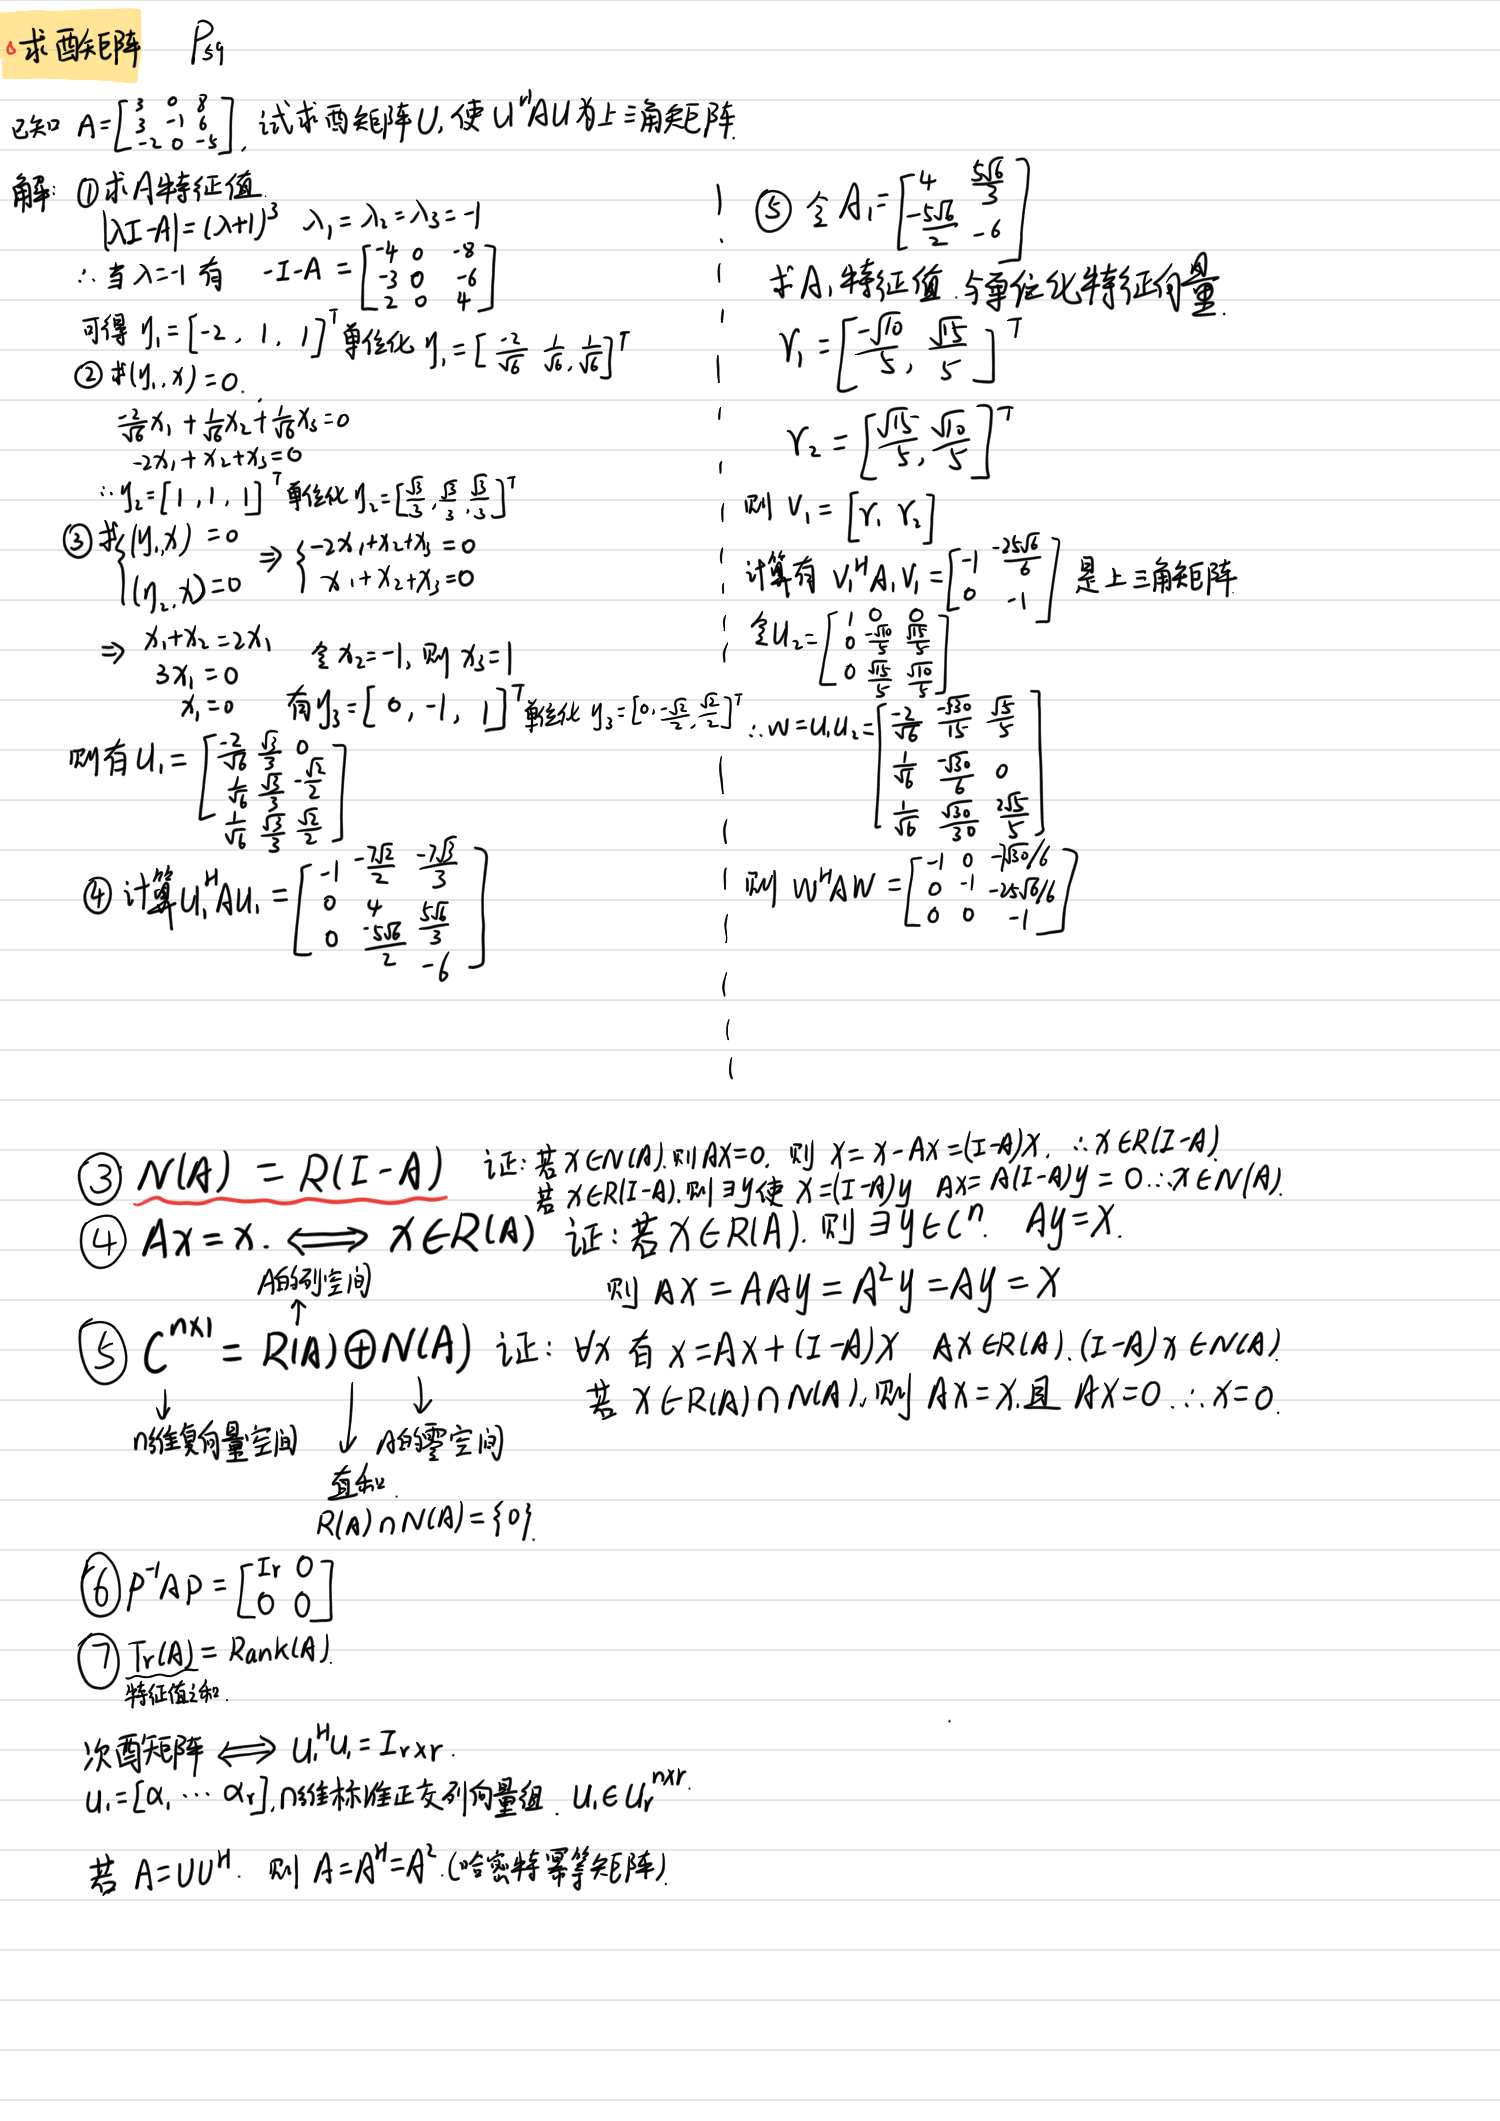 求酉矩阵 P59
已知 A=[3 0 8; 3 -1 6; -2 0 -5], 试求酉矩阵U,使UᴴAU为上三角矩阵.
解: ①求A特征值.
|λI-A|=(λ+1)³ λ₁=λ₂=λ₃=-1
∴当λ=-1有 -I-A=[-4 0 -8; -3 0 -6; 2 0 4]
可得 η₁=[-2, 1, 1]ᵀ 单位化 η₁=[-2/√6 1/√6, 1/√6]ᵀ
②求(η₁,x)=0.
-2/√6 x₁ + 1/√6 x₂ + 1/√6 x₃=0
-2x₁+x₂+x₃=0
∴η₂=[1, 1, 1]ᵀ 单位化 η₂=[√3/3, √3/3, √3/3]ᵀ
③求{(η₁,x)=0 (η₂,x)=0 ⇒ {-2x₁+x₂+x₃=0 x₁+x₂+x₃=0
⇒ x₁+x₂=2x₁
3x₁=0 令x₂=-1, 则x₃=1
x₁=0 有η₃=[0, -1, 1]ᵀ 单位化 η₃=[0, -√2/2, √2/2]ᵀ
则有U₁=[-2/√6 √3/3 0; 1/√6 √3/3 -√2/2; 1/√6 √3/3 √2/2]
④计算U₁ᴴAU₁=[-1 -7√2/2 -7√3/3; 0 4 5√6/3; 0 -5√6/2 -6]
⑤ 令A₁=[4 5√6/3; -5√6/2 -6]
求A₁特征值.与单位化特征向量.
γ₁=[-√10/5, √15/5]ᵀ
γ₂=[√15/5, √10/5]ᵀ
则V₁=[γ₁ γ₂]
计算有V₁ᴴA₁V₁=[-1 -25√6/6; 0 -1] 是上三角矩阵.
令U₂=[1 0 0; 0 -√10/5 √15/5; 0 √15/5 √10/5]
∴W=U₁U₂=[-2/√6 -√30/15 √5/5; 1/√6 -√30/6 0; 1/√6 √30/30 2√5/5]
则WᴴAW=[-1 0 -7√30/6; 0 -1 -25√6/6; 0 0 -1]
③ N(A) = R(I-A) 证:若x∈N(A).则Ax=0. 则 x=x-Ax=(I-A)x. ∴x∈R(I-A).
若 x∈R(I-A).则∃y使 x=(I-A)y Ax=A(I-A)y=0∴x∈N(A).
④ Ax=x. ⟺ x∈R(A) 证:若x∈R(A).则∃y∈Cⁿ. Ay=x.
则Ax=AAy=A²y=Ay=x
A的列空间
⑤ Cⁿˣ¹=R(A)⊕N(A) 证: ∀x 有 x=Ax+(I-A)x Ax∈R(A).(I-A)x∈N(A).
若 x∈R(A)∩N(A),则 Ax=x.且 Ax=0.∴x=0.
n维复向量空间 A的零空间
直和.
R(A)∩N(A)={0}.
⑥ P⁻¹AP=[Ir 0; 0 0]
⑦ Tr(A)=Rank(A).
特征值之和.
次酉矩阵 ⟺ U₁ᴴU₁=Ir×r.
U₁=[α₁ ⋯ αr], n维标准正交列向量组. U₁∈Urⁿˣʳ.
若 A=UUᴴ. 则 A=Aᴴ=A².(哈密特幂等矩阵).